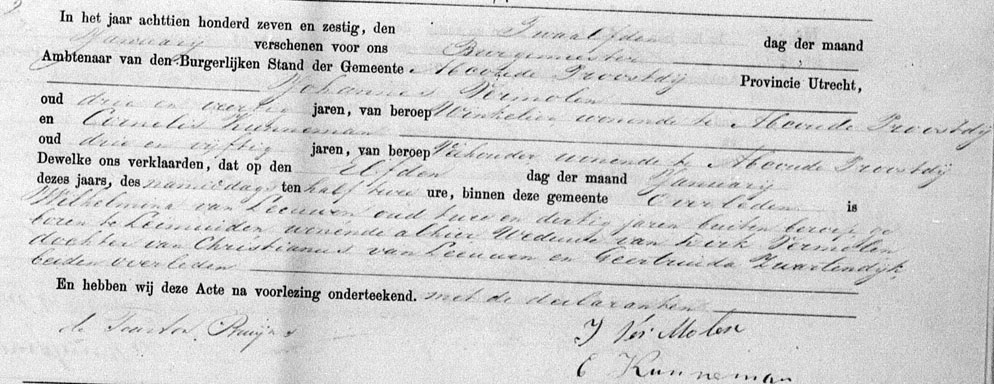 In het jaar achttien honderd zeven en zestig, den Twaalfden dag der maand
January verschenen voor ons Burgemeester
Ambtenaar van den Burgerlijken Stand der Gemeente Abcoude Proostdij Provincie Utrecht,
Johannes Vermolen
oud drie en veertig jaren, van beroep Winkelier wonende te Abcoude Proostdij
en Cornelis Kunneman
oud drie en vijftig jaren, van beroep Veehouder wonende te Abcoude Proostdij
Dewelke ons verklaarden, dat op den Elfden dag der maand January
dezes jaars, des namiddags ten half twee ure, binnen deze gemeente Overleden is
Wilhelmina van Leeuwen oud twee en dertig jaren buiten beroep ge
boren te Leimuiden wonende alhier Weduwe van Dirk Vermolen
dochter van Christianus van Leeuwen en Geertruida Zwartendijk
beiden overleden
En hebben wij deze Acte na voorlezing onderteekend. met de declaranten
J Ver Molen
C Kunneman